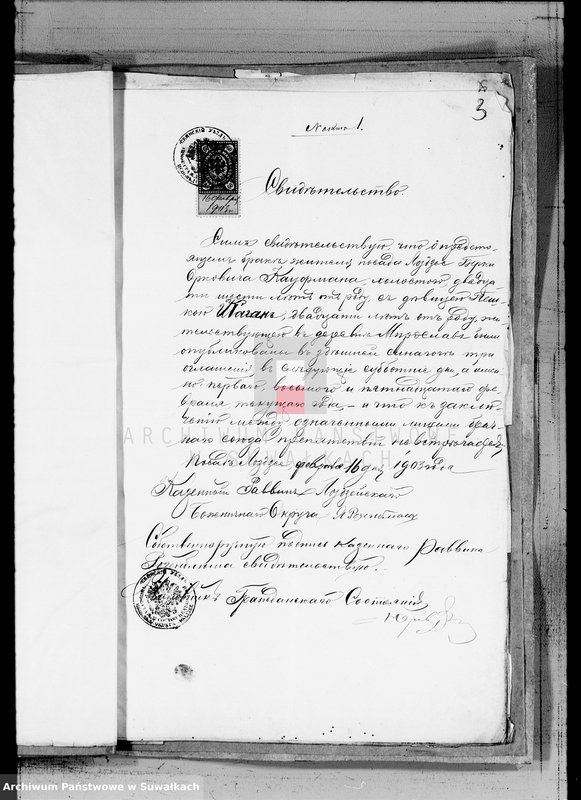 3
№ акта 1.
16 февраля
1903 г.
Свидѣтельство.
Симъ свидѣтельствую, что о предсто-
ящемъ бракѣ жителя посада Лодзее
Орковича Кауфмана, холостого, двадца-
ти шести лѣтъ отъ роду съ дѣвицею
Каганъ, двадцати лѣтъ отъ роду, жи-
тельствующею въ деревнѣ Мирославѣ были
опубликованы въ здѣшней синагогѣ три
оглашенія въ слѣдующіе субботніе дни, а имен-
но перваго, восьмого и пятнадцатаго фе-
враля текущаго года, — и что къ заклю-
ченію между означенными лицами брач-
наго союза препятствій не встрѣчается,
Посадъ Лодзее февраля 16 дня 1903 года
Казенный Раввинъ Лодзейскаго
Божничнаго Округа
Собственноручную подпись казеннаго Раввина
свидѣтельствую.
Чиновникъ Гражданскаго Состоянія
ARCHIWUM PAŃSTWOWE
W SUWAŁKACH
Archiwum Państwowe w Suwałkach